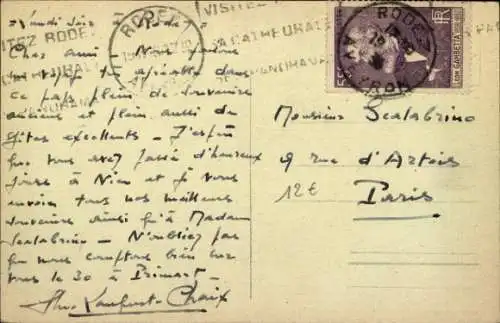 Lundi soir à Rodez
VISITEZ RODEZ
SA CATHEDRALE
RODEZ
AVEYRON
Cher ami – Nous faisons
un voyage très agréable dans
ce pays plein de souvenirs
anciens et plein aussi de
gîtes excellents – J'espère
que vous avez passé d'heureux
jours à Nice et je vous
envoie tous nos meilleurs
souvenirs ainsi qu'à Madame
Scalabrino – N'oubliez pas
que nous comptons bien sur
vous le 30 à
RF
Monsieur Scalabrino
9 rue d'Artois
12 €
Paris